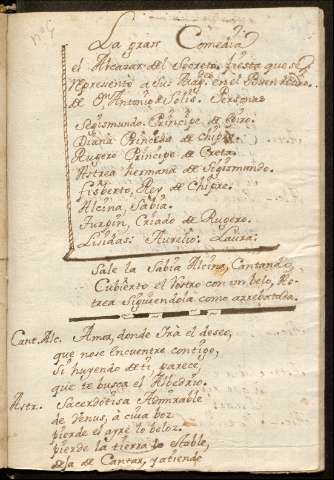 nº 6
La gran Comedia
el Alcazar del Secreto, fiesta que se
represento a Su Magd en el Buen Retiro.
de Dn Antonio de Solis. Personas
Segismundo. Principe de Epiro.
Diana Princesa de Chipre.
Rugero Principe de Creta.
Astrea hermana de Segismundo.
fisberto, Rey de Chipre.
Alcina, Sabia.
Turpin, Criado de Rugero.
Lisidas. Aurelio. Laura.
Sale la Sabia Alcina, Cantando,
Cubierto el rostro con un belo, As-
trea Siguiendola como arrebatada.
Cant. Alc. Amor, donde Irà el deseo,
que no se encuentre contigo,
Si huyendo de ti parece,
que te busca el Albedrio.
Astr. Sacerdotisa Admirable
de Venus, à cuia boz
pierde el ayre lo beloz.
pierde la tierra lo estable,
deja de Cantar, y atiende